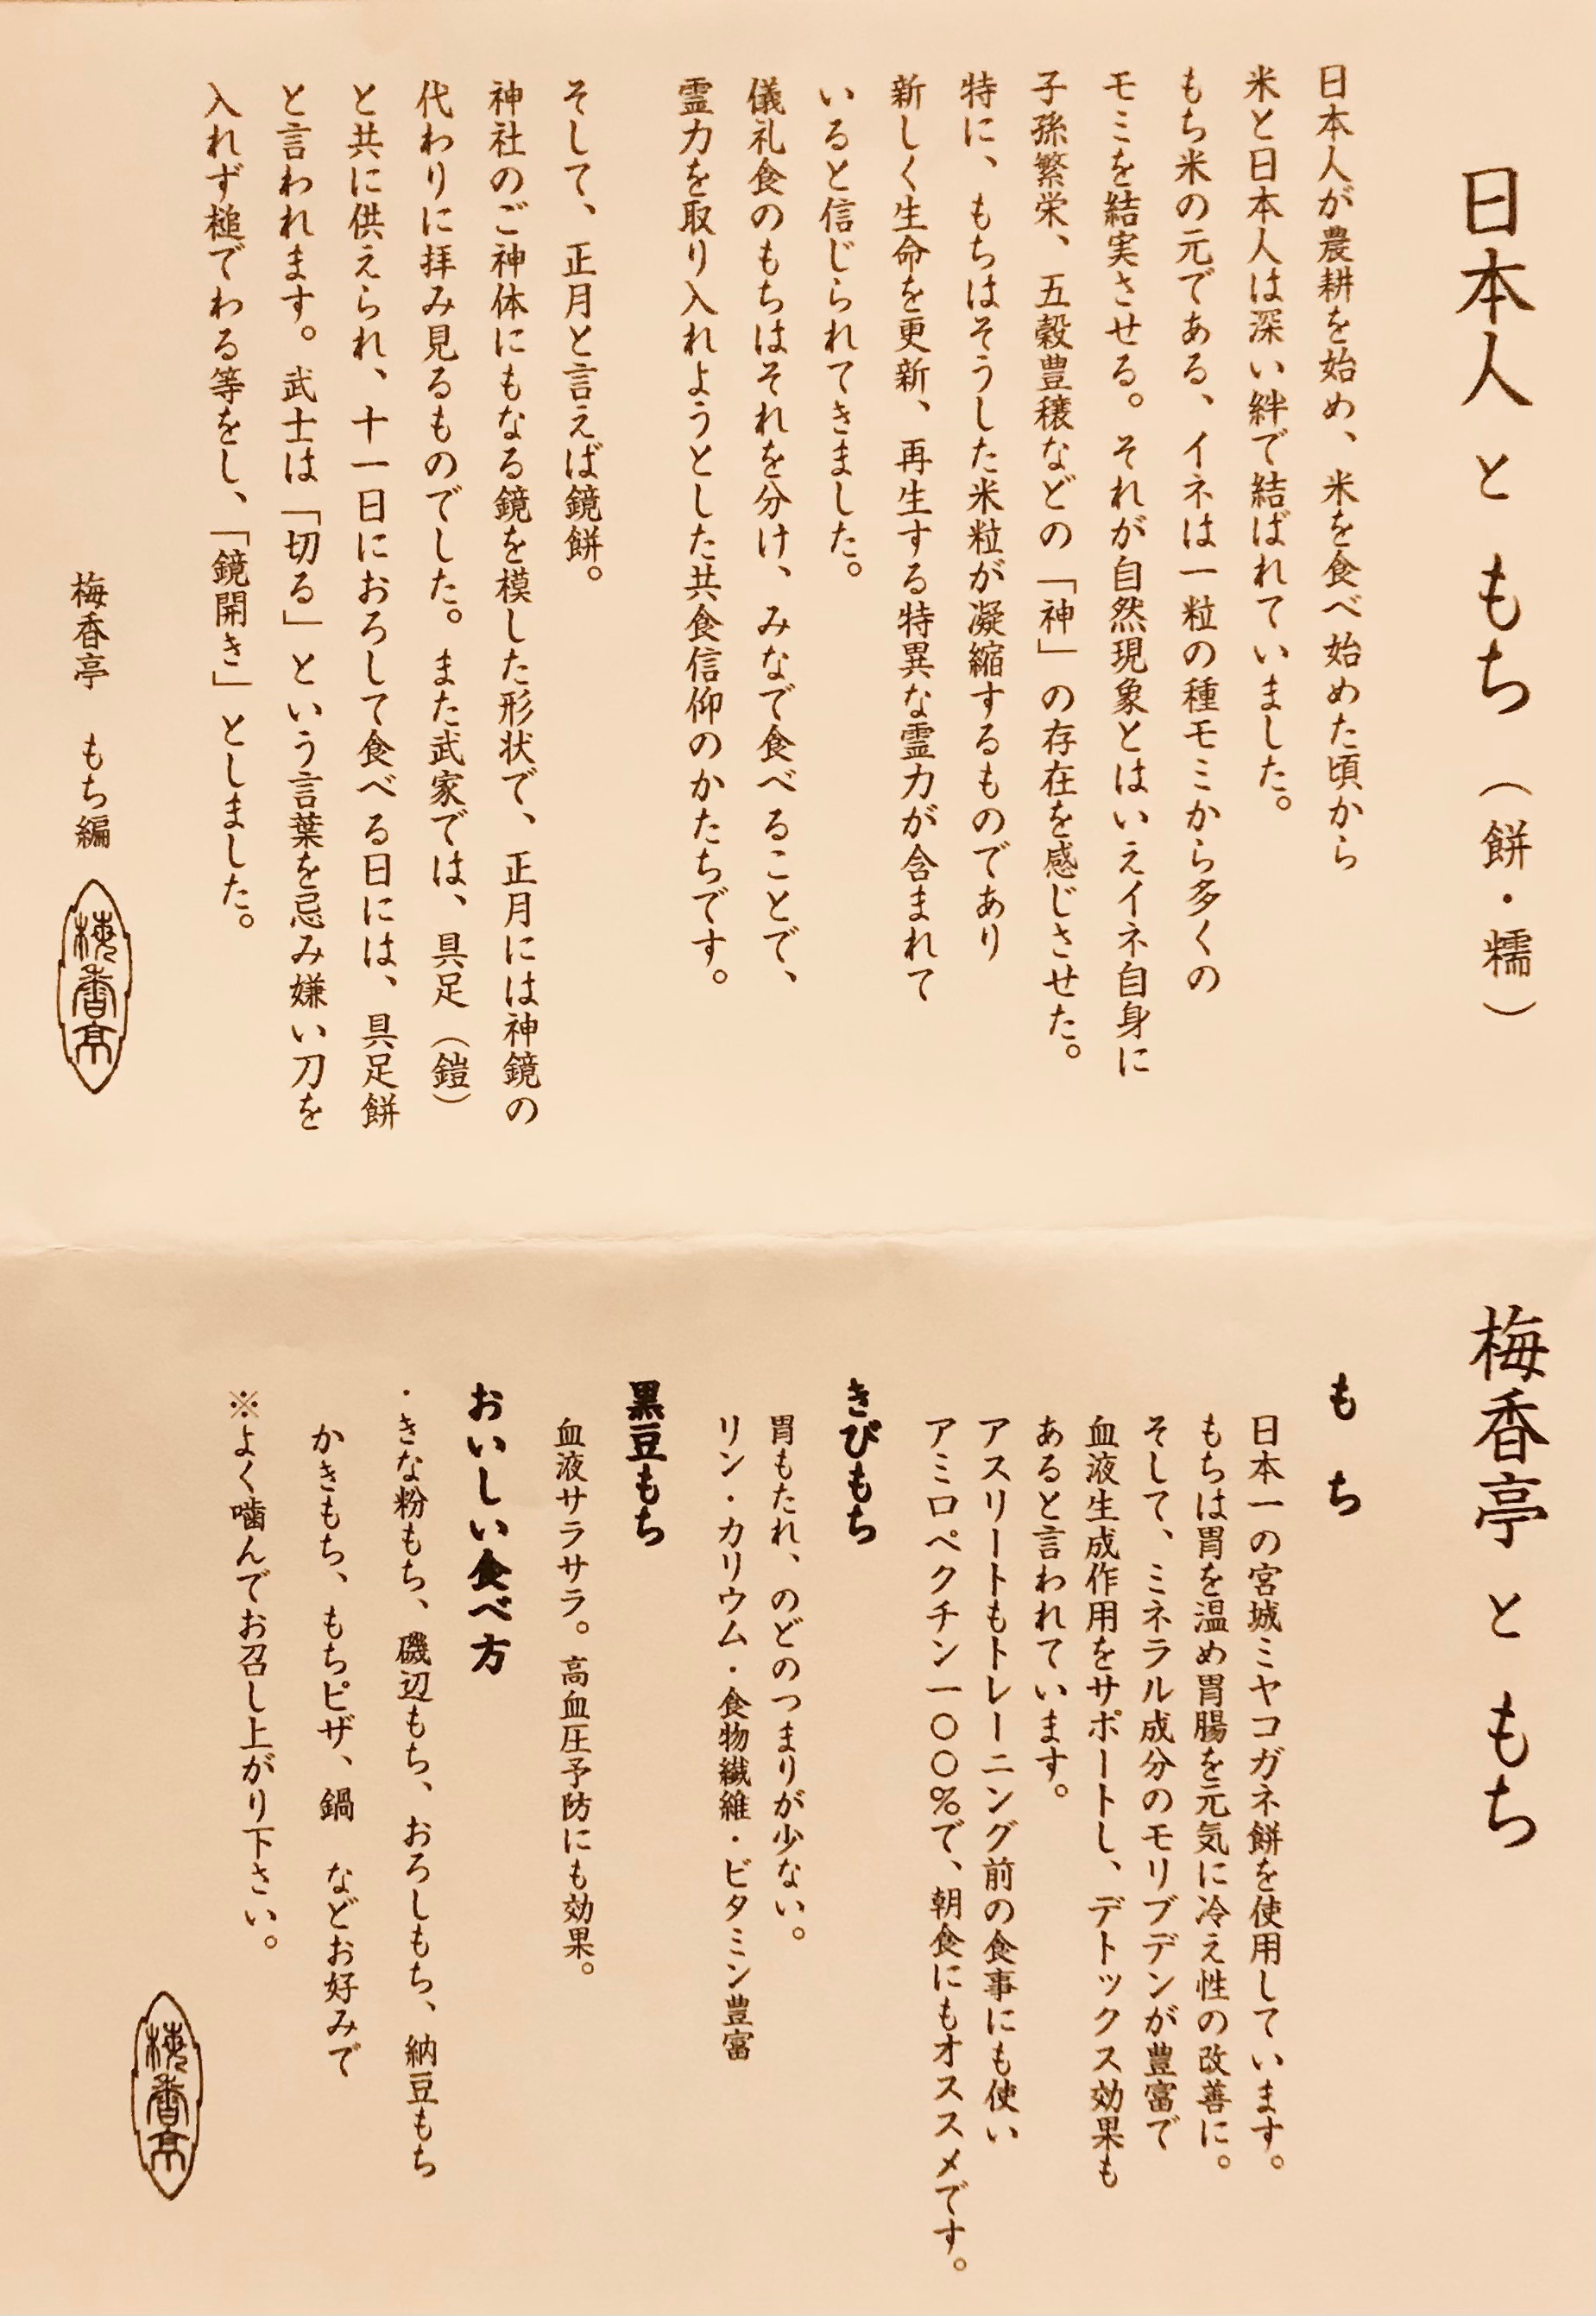 日本人と もち（餅・糯）
日本人が農耕を始め、米を食べ始めた頃から
米と日本人は深い絆で結ばれていました。
もち米の元である、イネは一粒の種モミから多くの
モミを結実させる。それが自然現象とはいえイネ自身に
子孫繁栄、五穀豊穣などの「神」の存在を感じさせた。
特に、もちはそうした米粒が凝縮するものであり
新しく生命を更新、再生する特異な霊力が含まれて
いると信じられてきました。
儀礼食のもちはそれを分け、みなで食べることで、
霊力を取り入れようとした共食信仰のかたちです。
そして、正月と言えば鏡餅。
神社のご神体にもなる鏡を模した形状で、正月には神鏡の
代わりに拝み見るものでした。また武家では、具足（鎧）
と共に供えられ、十一日におろして食べる日には、具足餅
と言われます。武士は「切る」という言葉を忌み嫌い刀を
入れず槌でわる等をし、「鏡開き」としました。
梅香亭 もち編
梅香亭
梅香亭と もち
もち
日本一の宮城ミヤコガネ餅を使用しています。
もちは胃を温め胃腸を元気に冷え性の改善に。
そして、ミネラル成分のモリブデンが豊富で
血液生成作用をサポートし、デトックス効果も
あると言われています。
アスリートもトレーニング前の食事にも使い
アミロペクチン一〇〇%で、朝食にもオススメです。
きびもち
胃もたれ、のどのつまりが少ない。
リン・カリウム・食物繊維・ビタミン豊富
黒豆もち
血液サラサラ。高血圧予防にも効果。
おいしい食べ方
・きな粉もち、磯辺もち、おろしもち、納豆もち
かきもち、もちピザ、鍋 などお好みで
※よく噛んでお召し上がり下さい。
梅香亭